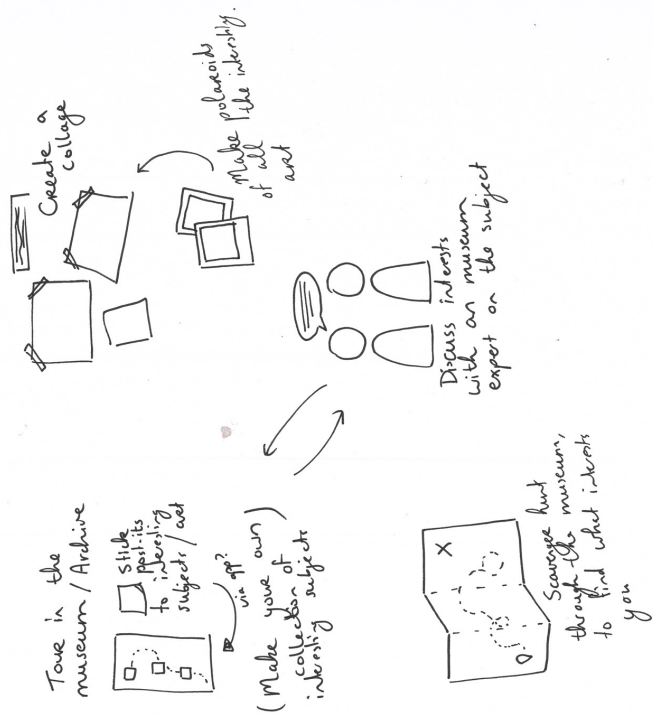 Tour in the
museum / Archive
Stick
post its
to interesting
subjects / art
via app?
(Make your own
collection of
interesting subjects)
Create a
collage
Make polaroids
of all the interesting
art
Discuss interests
with an museum
expert on the subject
Scavenger hunt
through the museum,
to find what interests
you